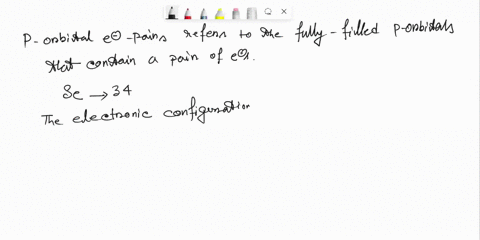 P-orbital e⊖-pairs refers to the fully-filled p-orbitals
that contain a pair of e⊖s.
Se → 34
The electronic configuration